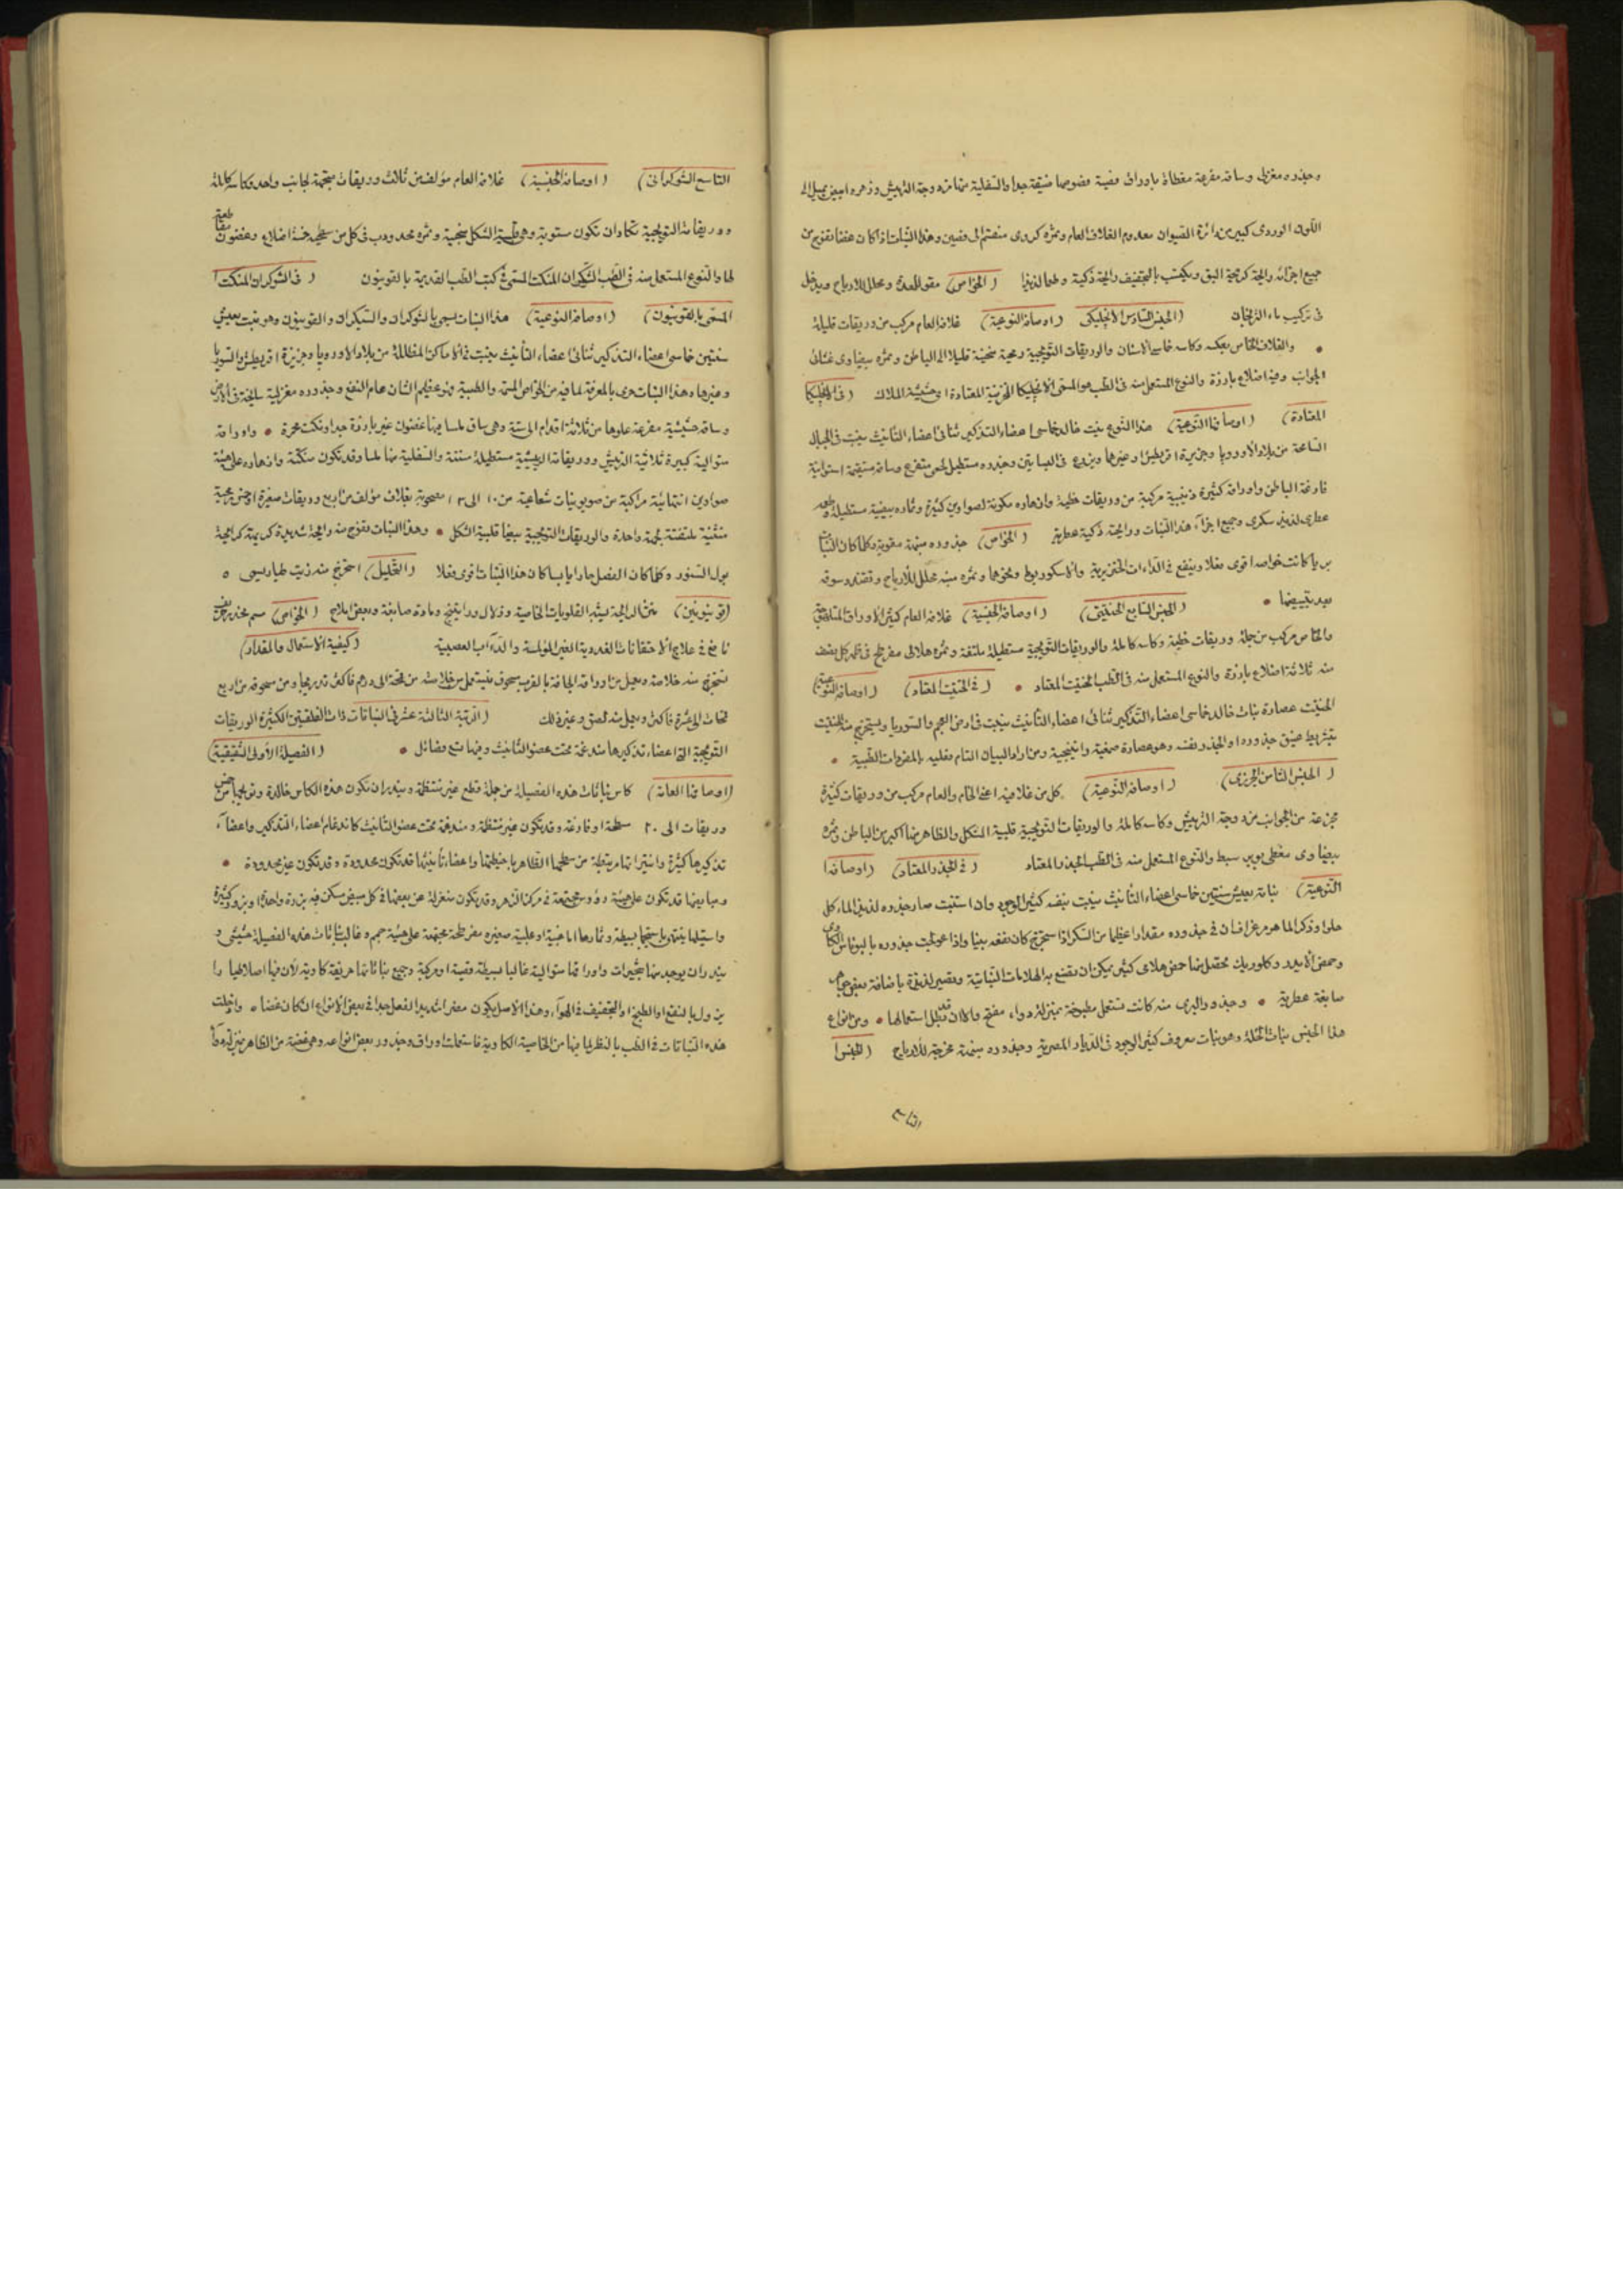 وجذوره مغزلى وساقه مفرعة مغطاة باوراق فضية فصوصها ضيقة جدا والسفلية منها مزدوجة التريش وزهره ابيض يميل الى
اللون الوردى كبير من دائرة الصيوان معدوم الغلاف العام وثمره كروى منقسم الى فصين وهذا النبات اذا كان غضا تفوح من
جميع اجزائه رائحة كريهة البق ويكتسب بالتجفيف رائحة ذكية وطعما لذيذا (الخواص) مقو للمعدة ومحلل للارياح ويدخل
فى تركيب ماء الترنجان (الجنس السادس الانجليكى) (اوصافه النوعية) غلافه العام مركب من وريقات قليلة
والغلاف الخاص بعكسه وكاسه خماسى الاسنان والوريقات التويجية رمحية منحنية قليلا الى الباطن وثمره بيضاوى غشائى
الجوانب وفيه اضلاع بارزة والنوع المستعمل منه فى الطب هو المسمى بالانجليكا المخزنية المعتادة اى حشيشة الملاك (فى الانجليكا
المعتادة) (اوصافها النوعية) هذا النوع نبت خالد خماسى اعضاء التذكير ثنائى اعضاء التأنيث ينبت فى الجبال
الشامخة من بلاد الاوروپا وجزيرة اقريطش وغيرها ويزرع فى البساتين وجذوره مستطيل لحمى متفرع وساقه مستقيمة اسطوانية
فارغة الباطن واوراقه كثيرة ذنيبية مركبة من وريقات خطية وازهاره مكونة لصواوين كثيرة وثماره بيضية مستطيلة وطعمه
عطرى لذيذ سكرى وجميع اجزاء هذا النبات ورائحته ذكية عطرية (الخواص) جذوره منبهة مقوية وكلما كان النبات
بريا كانت خواصه اقوى فعلا وينفع فى الداءات الخنزيرية والاسكوربوط ونحوها وثمره منبه محلل للارياح وتقند سوقه
بعد تبييضها (الجنس السابع الحلتيتى) (اوصافه الجنسية) غلافه العام كثير الاوراق المتلاصقة
والخاص مركب من جملة وريقات خطية وكاسه كاملة والوريقات التويجية مستطيلة ملتفة وثمره هلالى مفرطح فى ظهر كل نصف
منه ثلاثة اضلاع بارزة والنوع المستعمل منه فى الطب الحلتيت المعتاد (فى الحلتيت المعتاد) (اوصافه النوعية)
الحلتيت عصارة نبات خالد خماسى اعضاء التذكير ثنائى اعضاء التأنيث ينبت فى ارض العجم والسوريا ويستخرج منه الحلتيت
بتشريط عنق جذوره او الجذر نفسه وهو عصارة صمغية راتينجية ومن اراد البيان التام فعليه بالمفردات الطبية
(الجنس الثامن الجزرى) (اوصافه النوعية) كل من غلافيه اعنى الخاص والعام مركب من وريقات كثيرة
مجزعة من الجوانب مزدوجة التريش وكاسه كاملة والوريقات التويجية قلبية الشكل والظاهر منها اكبر من الباطن وثمره
بيضاوى مغطى بوبر بسيط والنوع المستعمل منه فى الطب الجزر المعتاد (فى الجزر المعتاد) (اوصافه
النوعية) نباته يعيش سنتين خماسى اعضاء التأنيث ينبت بنفسه كثير الوجود وان استنبت صار جذوره لذيذ الماء كل
حلوا وذكر الماهر مرغراف ان فى جذوره مقدارا عظيما من السكر اذا استخرج كان نفعه بينا واذا عولجت جذوره بالبوتاس الكاوى
وحمض الايدروكلوريك تحصل منها حمض هلامى كثير يمكن ان تصنع به الهلامات النباتية وتصير لذيذة باضافة بعض جواهر
صابغة عطرية وجذور البرى منه كانت تستعمل مطبوخة بمنزلة دواء مفتح والان قد بطل استعمالها ومن انواع
هذا الجنس نبات الخلة وهو نبات معروف كثير الوجود فى الديار المصرية وجذوره منبهة مخرجة للارياح (الجنس
التاسع
التاسع الشوكرانى) (اوصافه الجنسية) غلافه العام مؤلف من ثلاث وريقات متجهة لجانب واحد وكاسه كاملة
ووريقاته التويجية تكاد ان تكون مستوية وهى قلبية الشكل منحنية وثمره محدودب فى كل من سطحيه خمسة اضلاع وغضون متقاطعة
لها والنوع المستعمل منه فى الطب الشيكران المنكت المسمى فى كتب الطب القديمة بالقونيون (فى الشوكران المنكت
المسمى بالقونيون) (اوصافه النوعية) هذا النبات يسمى بالشوكران والشيكران والقونيون وهو نبت يعيش
سنتين خماسى اعضاء التذكير ثنائى اعضاء التأنيث ينبت فى الاماكن المظللة من بلاد الاوروپا وجزيرة اقريطش والسوريا
وغيرها وهذا النبات حرى بالمعرفة لما فيه من الخواص السمية والطبية فهو عظيم الشان عام النفع وجذوره مغزلية سابحة فى الارض
وساقه حشيشية مفرعة علوها من ثلاثة اقدام الى ستة وهى ساق ملسا فيها غضون غير بارزة جدا ونكت محمرة واوراقه
متوالية كبيرة ثلاثية التريش ووريقاته الريشية مستطيلة مسننة والسفلية منها ملسا وقد تكون منكتة وازهاره على هيئة
صواوين انتهائية مركبة من صويوينات شعاعية من ١٠ الى ١٢ مصحوبة بغلاف مؤلف من اربع وريقات صغيرة اجنى رمحية
منثنية ملتفتة لجهة واحدة والوريقات التويجية بيضا قلبية الشكل وهذا النبات تفوح منه رائحة شديدة كريهة كرائحة
بول السنور وكلما كان الفصل حارا يابسا كان هذا النبات اقوى فعلا (التحليل) استخرج منه زيت طيار يسمى
(قونيونين) منتن الرائحة يشبه القلويات الخاصية وزلال وراتينج ومادة صابغة وبعض املاح (الخواص) سم مخدر
نافع فى علاج الاحتقانات الغددية الغير المؤلمة والداآت العصبية (كيفية الاستعمال والمقدار)
تستخرج منه خلاصة ويعمل من اوراقه الجافة بالقرب مسحوق فيستعمل من خلاصته من قمحة الى درهم فاكثر تدريجا ومن مسحوقه من اربع
قمحات الى عشرة فاكثر ويعمل منه لصق وغير ذلك (الرتبة الثالثة عشر فى النباتات ذات الفلقتين الكثيرة الوريقات
التويجية التى اعضاء تذكيرها مندغمة تحت عضو التأنيث وفيها تسع فصائل (الفصيلة الاولى الشقيقية)
(اوصافها العامة) كاس نباتات هذه الفصيلة من جملة قطع غير منتظمة ويندر ان تكون هذه الكاس خالدة وتويجها من خمس
وريقات الى ٢٠ مسطحة او فارغة وقد تكون غير منتظمة ومندغمة تحت عضو التأنيث كاندغام اعضاء التذكير واعضاء
تذكيرها كثيرة وانتيراتها مرتبطة من سطحها الظاهر بخيطها واعضاء تأنيثها قد تكون محدودة وقد تكون غير محدودة
ومبايضها قد تكون على هيئة رؤوس مجتمعة فى مركز الزهر وقد تكون منعزلة عن بعضها فى كل مبيض مسكن فيه بزرة واحدة او بزور كثيرة
واستيلها ينتهى باستجما بسيطة وثمارها اما غنبية او علبية صغيرة مفرطحة مجتمعة على هيئة حجم وغالب نباتات هذه الفصيلة حشيشى و
يندر ان يوجد منها شجيرات واوراقها متوالية غالبا بسيطة فصية او مركبة وجميع نباتاتها حريفة كاوية لان فيها اصلا طيارا
يزول بالنقع او الطبخ او التجفيف فى الهواء وهذا الاصل يكون مضرا شديد الفعل جدا فى بعض الانواع ان كان غضا وادخلت
هذه النباتات فى الطب بالنظر لما فيها من الخاصية الكاوية فاستعملت اوراق وجذور بعض انواعه وهى غضة من الظاهر بمنزلة دواء